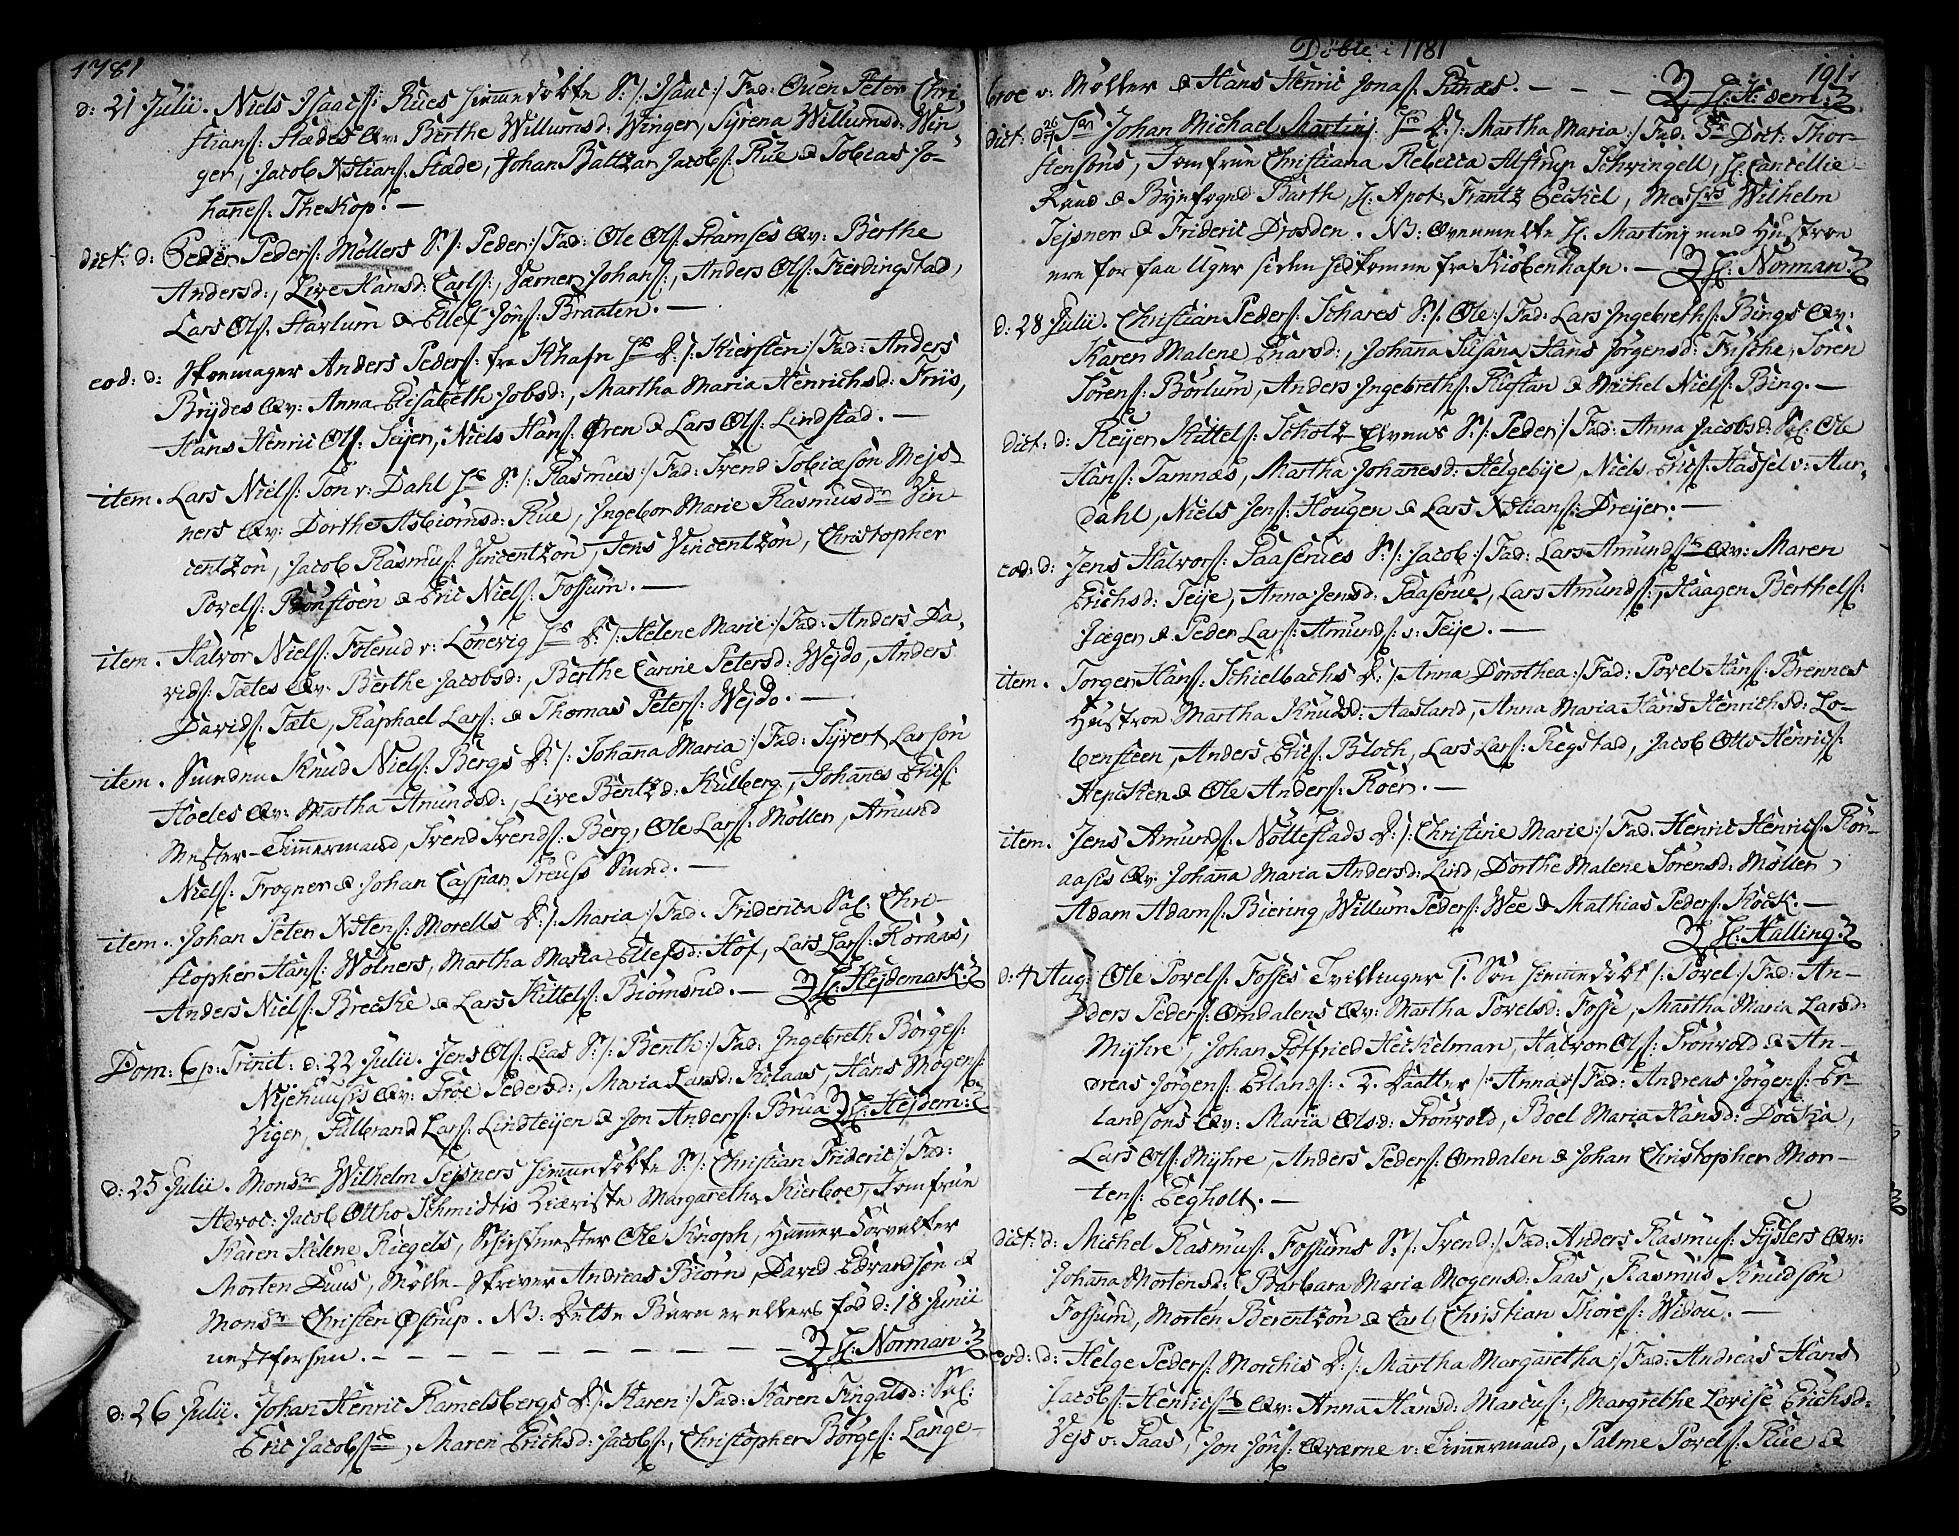 1781
d: 21 Julii. Niels Isaacs: Rues hiemmedøbte S:/: Isaac:/ Fad: Even Peter Chri-
stians: Stædes Qv: Berthe Willumsd: Winger, Syrena Willumsd: Win-
ger, Jacob Xstians: Stæde, Johan Baltzar Jacobs: Rue & Tobias Jo-
hannes: Theskop. —
dict: d: Peder Peders: Møllers S:/: Peder:/ Fad: Ole Ols: Stamses Qv: Berthe
Andersd:, Live Hansd: Carls:, Værner Johans:, Anders Ols: Fierdingstad,
Lars Ols: Starlum & Ellef Jons: Braaten. —
eod: d: Skomager Anders Peders: fra Khafn D:/: Kiersten:/ Fad: Anders
Brydes Qv: Anna Elisabeth Jobsd:, Martha Maria Henrichsd: Friis,
Hans Henric Ols: Seijer, Niels Hans: Øren & Lars Ols: Lindstad. —
item. Lars Niels: Ton v: Dahl S:/: Rasmus:/ Fad: Svend Tobiæsøn Mejs-
ners Qv: Dorthe Asbiørnsd: Rue, Ingebor Marie Rasmusdr Vin-
centzøn, Jacob Rasmus: Vincentzøn, Jens Vincentzøn, Christopher
Povels: Prønstøen & Eric Niels: Fossum. —
item. Halvor Niels: Foterud v: Lønevig D:/: Helene Marie:/ Fad: Anders Da-
vids: Tætes Qv: Berthe Jacobsd:, Berthe Carine Petersd: Wejdo, Anders
Davids: Tæte, Raphael Lars: & Thomas Peters: Wejdo. —
item. Smeden Knud Niels: Bergs D:/: Johana Maria:/ Fad: Syvert Larsøn
Hoeles Qv: Martha Amundsd:, Live Bentzd: Kulberg, Johanes Erics:
Mester-Timmermand, Svend Svends: Berg, Ole Lars: Møller, Amund
Niels: Trogner & Johan Caspar Preuss Smed. —
item. Johan Peter Xstens: Morells D:/: Maria:/ Fad: Friderica Sal: Chri-
stopher Hans: Wølners, Martha Maria Ellefsd: Hof, Lars Lars: Roraas,
Anders Niels: Brecke & Lars Kittels: Biørnsrud. — H: Hejdemark.
Dom: 6 p: Trinit: d: 22 Julii. Jens Ols: Lias S:/: Benth:/ Fad: Ingebreth Børges:
Nyehuuses Qv: Troe Pedersd:, Maria Larsd: Kolaas, Hans Mogens:
Viger, Gulbrand Lars: Lindteijen & Jon Anders: Brua H: Hejdem:
d: 25 Julii. Monsr Wilhelm Tejsners hiemmedøbte S:/: Christian Frideric:/ Fad:
Advoc: Jacob Ottho Schmidts Kiæriste Margaretha Kierboe, Jomfrue
Karen Helene Riegels, Schichtmester Ole Knoph, Hammer-Forvalter
Morten Duus, Mølle-Skriver Andreas Biørn, David Edvardsøn &
Monsr Christen Østrup. NB: Dette Barn er ellers fød d: 18 Junii
nestforhen. — H: Norman.
d: 26 Julii. Johan Henric Ramelsbergs D:/: Karen:/ Fad: Karen Fingalsd: Sal:
Eric Jacobs:, Maren Erichsd: Jacobs:, Christopher Børges: Lange-
Døbte i 1781
191.
broe v: Møller & Hans Henric Jonas: Funæs. — — — H: H: dem:
dict: d 26/7 Hr Johan Michael Martinj D:/: Martha Maria:/ Fad: Dict: Thor-
stensens, Jomfrue Christiana Rebecca Alstrup Schvingell, H: Cancellie-
Raad & Byefogd Barth, H: Apot: Frantz Peckel, Messrs Wilhelm
Tejsner & Frideric Drosden. NB: Ovenmelte H: Martinj med Hustroe
ere for faa Uger siden hidkomne fra Kiøbenhafn. — H: Norman
d: 28 Julii. Christian Peders: Schares S:/: Ole:/ Fad: Lars Ingebreths: Bings Qv:
Karen Malene Enarsd:, Johanna Susana Hans Jørgensd: Fische, Søren
Sørens: Børlum, Anders Ingebreths: Rustan & Michel Niels: Bing. —
dict: d: Reijer Kittels: Scholtz Elvens S:/: Peder:/ Fad: Anna Jacobsd: Sal: Ole
Hans: Tamnæs, Martha Johanesd: Helgebye, Niels Erics: Hassel v: Aur-
dahl, Niels Jens: Hougen & Lars Xstians: Dreijer. —
eod: d: Jens Halvors: Paaserues S:/: Jacob:/ Fad: Lars Amunds: Qv: Maren
Erichsd: Teije, Anna Jensd: Paaserue, Lars Amunds:, Haagen Berthels:
Jæger & Peder Lars: Amunds: v: Teije. —
item. Torger Hans: Schielbachs D:/: Anna Dorothea:/ Fad: Povel Hans: Brennes
Hustroe Martha Knudsd: Aasland, Anna Maria Hans Henrichsd: Lo-
bensteen, Anders Erics: Bloch, Lars Lars: Regstad, Jacob Otto Henrics:
Hepisken & Ole Anders: Roer. —
item. Jens Amunds: Nøttestads D:/: Christine Marie:/ Fad: Henric Henrics: Ron-
aases Qv: Johana Maria Andersd: Lind, Dorthe Malene Sørensd: Møller,
Adam Adams: Biering, Willum Peders: Wee & Mathias Peders: Kock. —
H: Halling.
d: 4 Aug: Ole Povels: Fosses Tvillinger 1. Søn hiemmedøbt:/: Povel:/ Fad: An-
ders Peders: Omdalens Qv: Martha Povelsd: Fosse, Martha Maria Larsd:
Myhre, Johan Gotfried Heckelman, Halvor Ols: Prønvold & An-
dreas Jørgens: Erlands:. 2. Daatter /: Anna:/ Fad: Andreas Jørgens: Er-
landsøns Qv: Maria Olsd: Prønvold, Boel Maria Hansd: Docka,
Lars Ols: Myhre, Anders Peders: Omdalen & Johan Christopher Mor-
tens: Eegholt. —
dict: d: Michel Rasmus: Fossums S:/: Svend:/ Fad: Anders Rasmus: Fyslers Qv:
Johana Mortensd:, Barbara Maria Mogensd: Saas, Rasmus Knudsøn
Fossum, Morten Berentzøn & Carl Christian Thores: Widou. —
eod: d: Helge Peders: Morchis D:/: Martha Margaretha:/ Fad: Andreas Hans
Jacobs: Henrics: Qv: Anna Hansd: Marcus:, Margrethe Lovise Erichsd:
Vejs v: Saas, Jon Jons: Qværne v: Timmermand, Palme Povels: Rue &